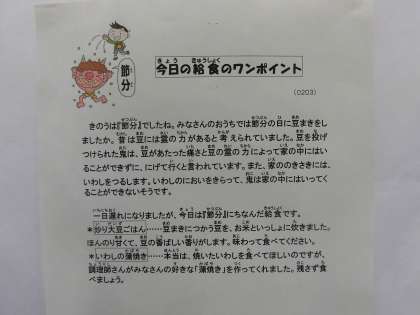 節分
今日の給食のワンポイント
(0203)
きのうは『節分』でしたね。みなさんのおうちでは節分の日に豆まきをし
ましたか。昔は豆には霊の力があると考えられていました。豆を投げ
つけられた鬼は、豆があたった痛さと豆の霊の力によって家の中にはい
ることができずに、にげて行くと言われています。また、家ののきさきには、
いわしをつるします。いわしのにおいをきらって、鬼は家の中にはいってく
ることができないそうです。
一日遅れになりましたが、今日は『節分』にちなんだ給食です。
*炒り大豆ごはん……豆まきにつかう豆を、お米といっしょに炊きました。
ほんのり甘くて、豆の香ばしい香りがします。味わって食べてください。
*いわしの蒲焼き……本当は、焼いたいわしを食べてほしいのですが、
調理師さんがみなさんの好きな「蒲焼き」を作ってくれました。残さず食
べましょう。